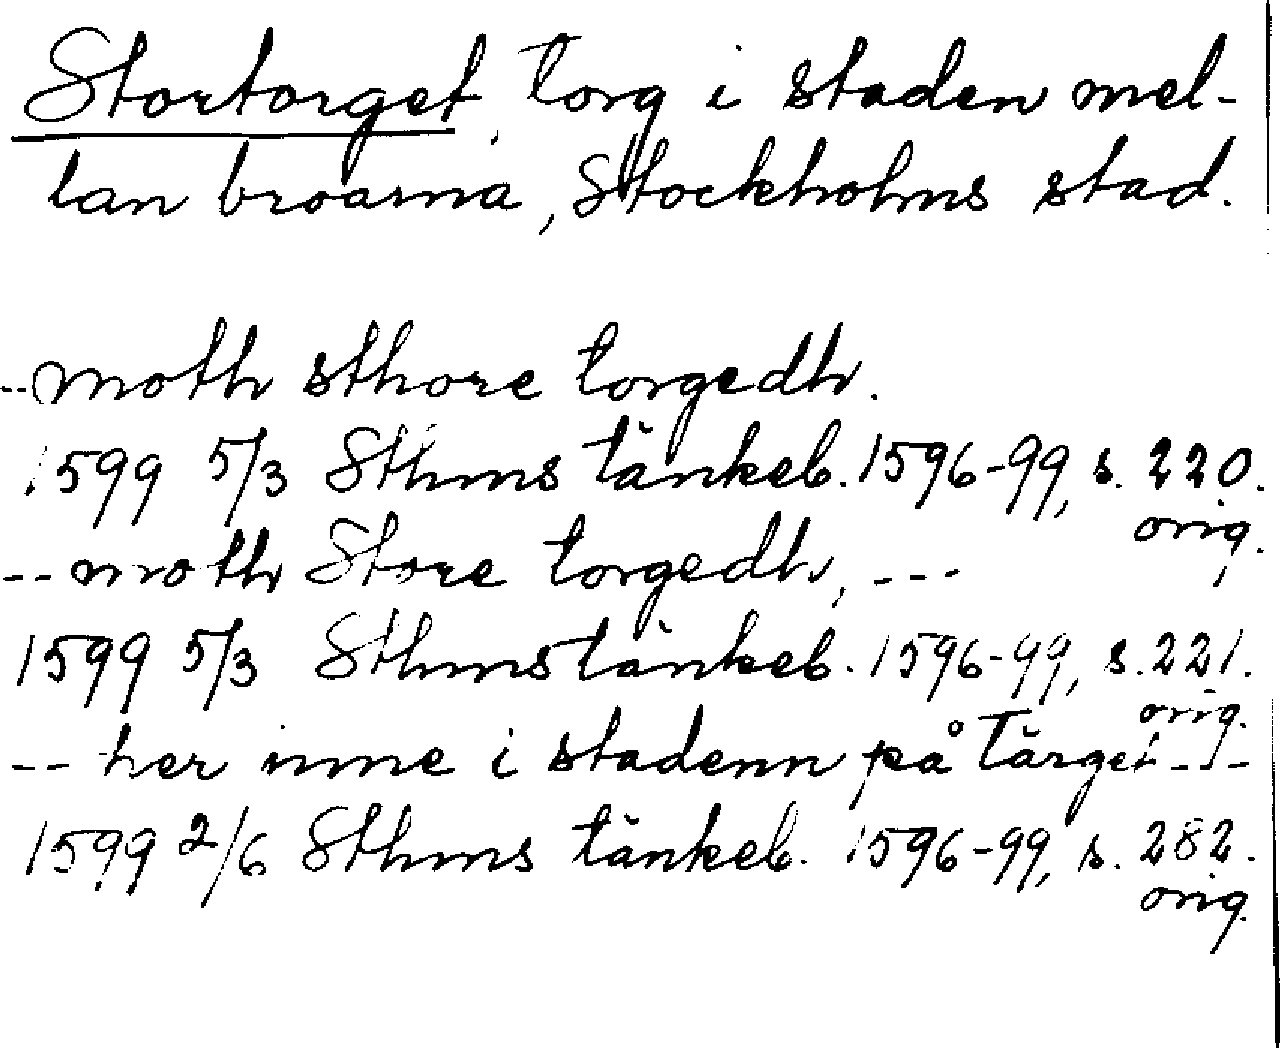 Stortorget, torg i staden mel-
lan broarna, Stockholms stad.
--moth sthore torgedh.
1599 5/3 Sthms tänkeb. 1596-99, s. 220.
orig.
-- moth Store torgedh, ---
1599 5/3 Sthms tänkeb. 1596-99, s. 221.
orig.
-- her inne i stadenn på Tårget ---
1599 2/6 Sthms tänkeb. 1596-99, s. 282.
orig.